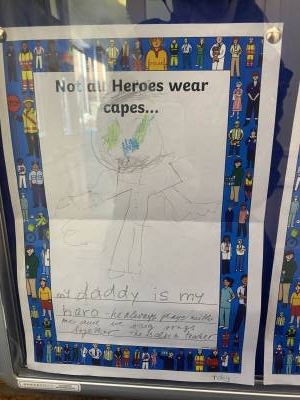 Not all Heroes wear
capes...
my daddy is my
hero - he always plays with
me and we sing songs
together - he is also a teacher